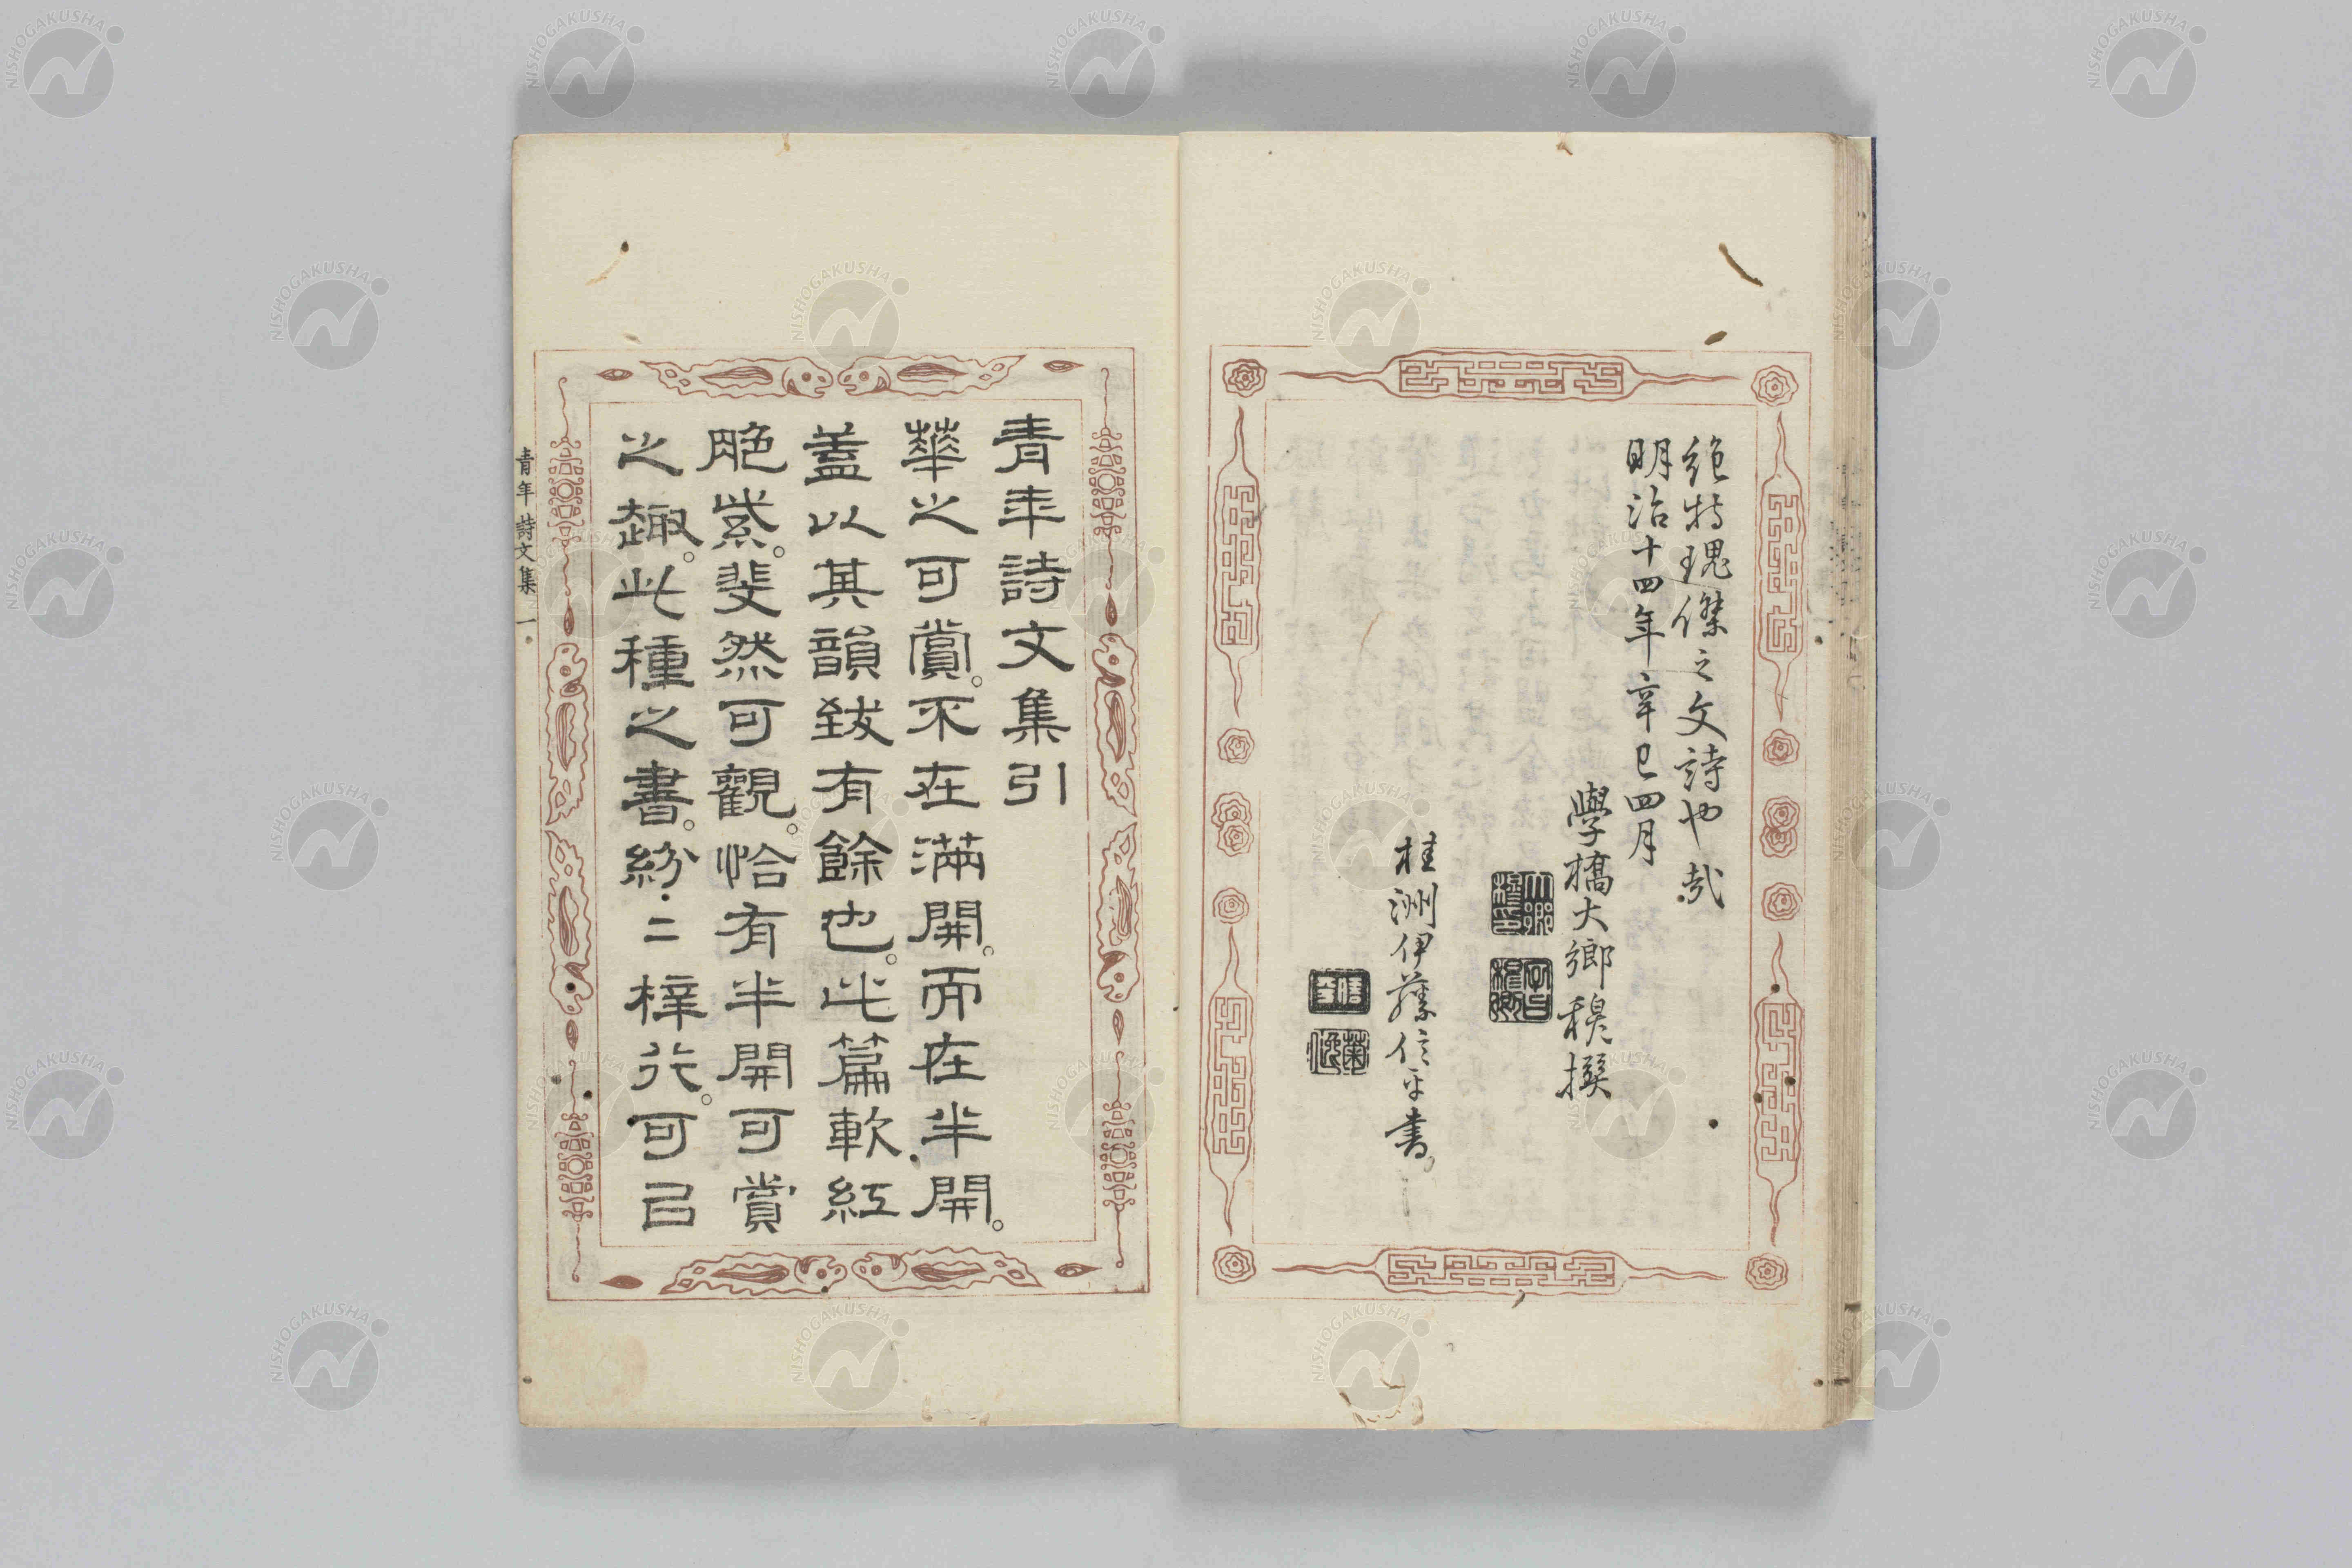 絶特瑰傑之文詩也哉
明治十四年辛巳四月
學橋大鄉穆撰
桂洲伊藤信平書
青年詩文集引
華之可賞。不在滿開。而在半開。
蓋以其韻致有餘也。此篇軟紅
脆紫。斐然可觀。恰有半開可賞
之趣。此種之書。紛二梓行。可已
青年詩文集 一
NISHOGAKUSHA